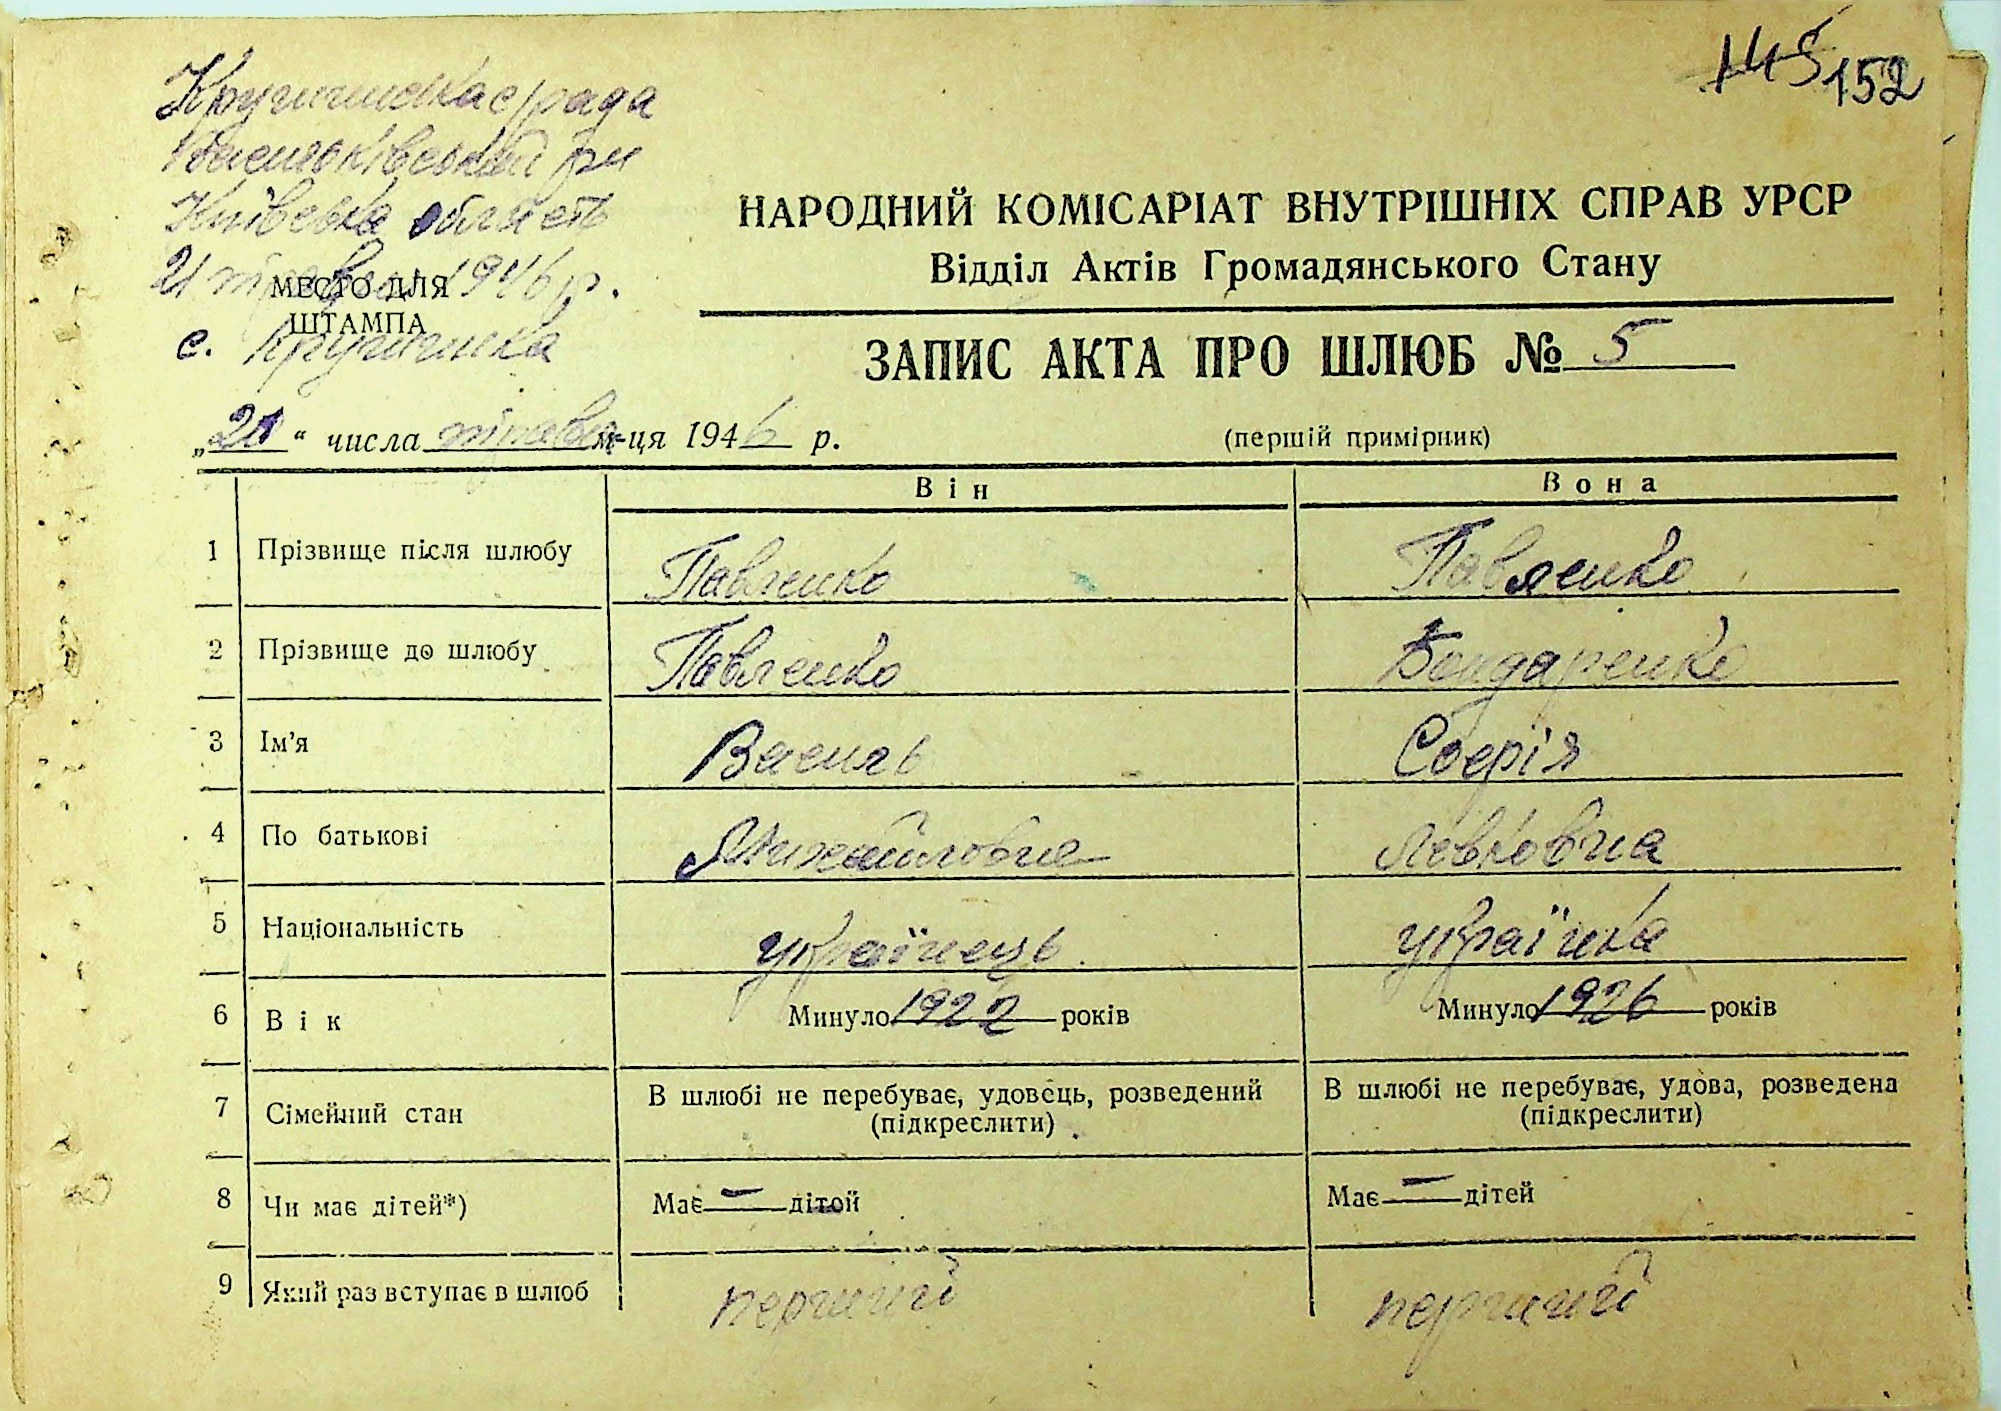 145 152
Кругличанська с/рада
Васильківський р-н
Київська область
21 травня 1946 р.
МЕСТО ДЛЯ
ШТАМПА
с.
НАРОДНИЙ КОМІСАРІАТ ВНУТРІШНІХ СПРАВ УРСР
Відділ Актів Громадянського Стану
ЗАПИС АКТА ПРО ШЛЮБ № 5
„21“ числа травня м-ця 1946 р.
(першій примірник)
Він Вона
1 Прізвище після шлюбу Павленко Павленко
2 Прізвище до шлюбу Павленко Бондаренко
3 Ім'я Василь Софія
4 По батькові Михайлович Левковна
5 Національність українець українка
6 Вік Минуло 1922 років Минуло 1926 років
7 Сімейний стан В шлюбі не перебуває, удовець, розведений (підкреслити) В шлюбі не перебуває, удова, розведена (підкреслити)
8 Чи має дітей*) Має — дітей Має — дітей
9 Який раз вступає в шлюб перший перший